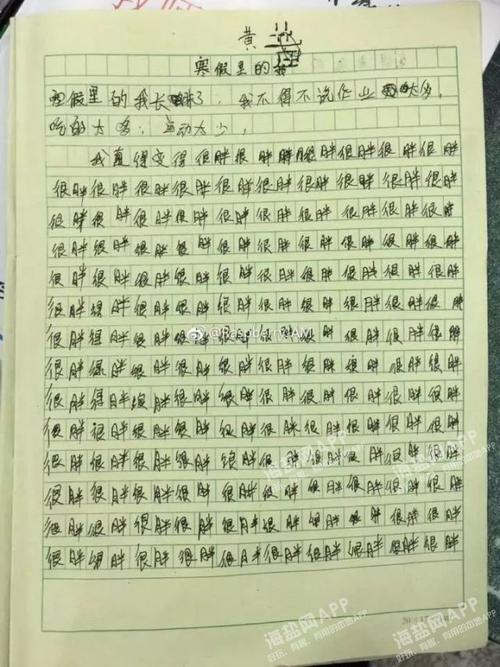 黄
寒假里的我
寒假里的我长胖了，我不得不说作业太多，
吃的太多，运动太少，
我真得变得很胖很胖很胖很胖很胖很胖
很胖很胖很胖很胖很胖很胖很胖很胖很胖很胖
很胖很胖很胖很胖很胖很胖很胖很胖很胖很胖
很胖很胖很胖很胖很胖很胖很胖很胖很胖很胖
很胖很胖很胖很胖很胖很胖很胖很胖很胖很胖
很胖很胖很胖很胖很胖很胖很胖很胖很胖很胖
很胖很胖很胖很胖很胖很胖很胖很胖很胖很胖
很胖很胖很胖很胖很胖很胖很胖很胖很胖很胖
很胖很胖很胖很胖很胖很胖很胖很胖很胖很胖
很胖很胖很胖很胖很胖很胖很胖很胖很胖很胖
很胖很胖很胖很胖很胖很胖很胖很胖很胖很胖
很胖很胖很胖很胖很胖很胖很胖很胖很胖很胖
很胖很胖很胖很胖很胖很胖很胖很胖很胖很胖
很胖很胖很胖很胖很胖很胖很胖很胖很胖很胖
海盐网APP
好玩、有趣、有用的本地APP